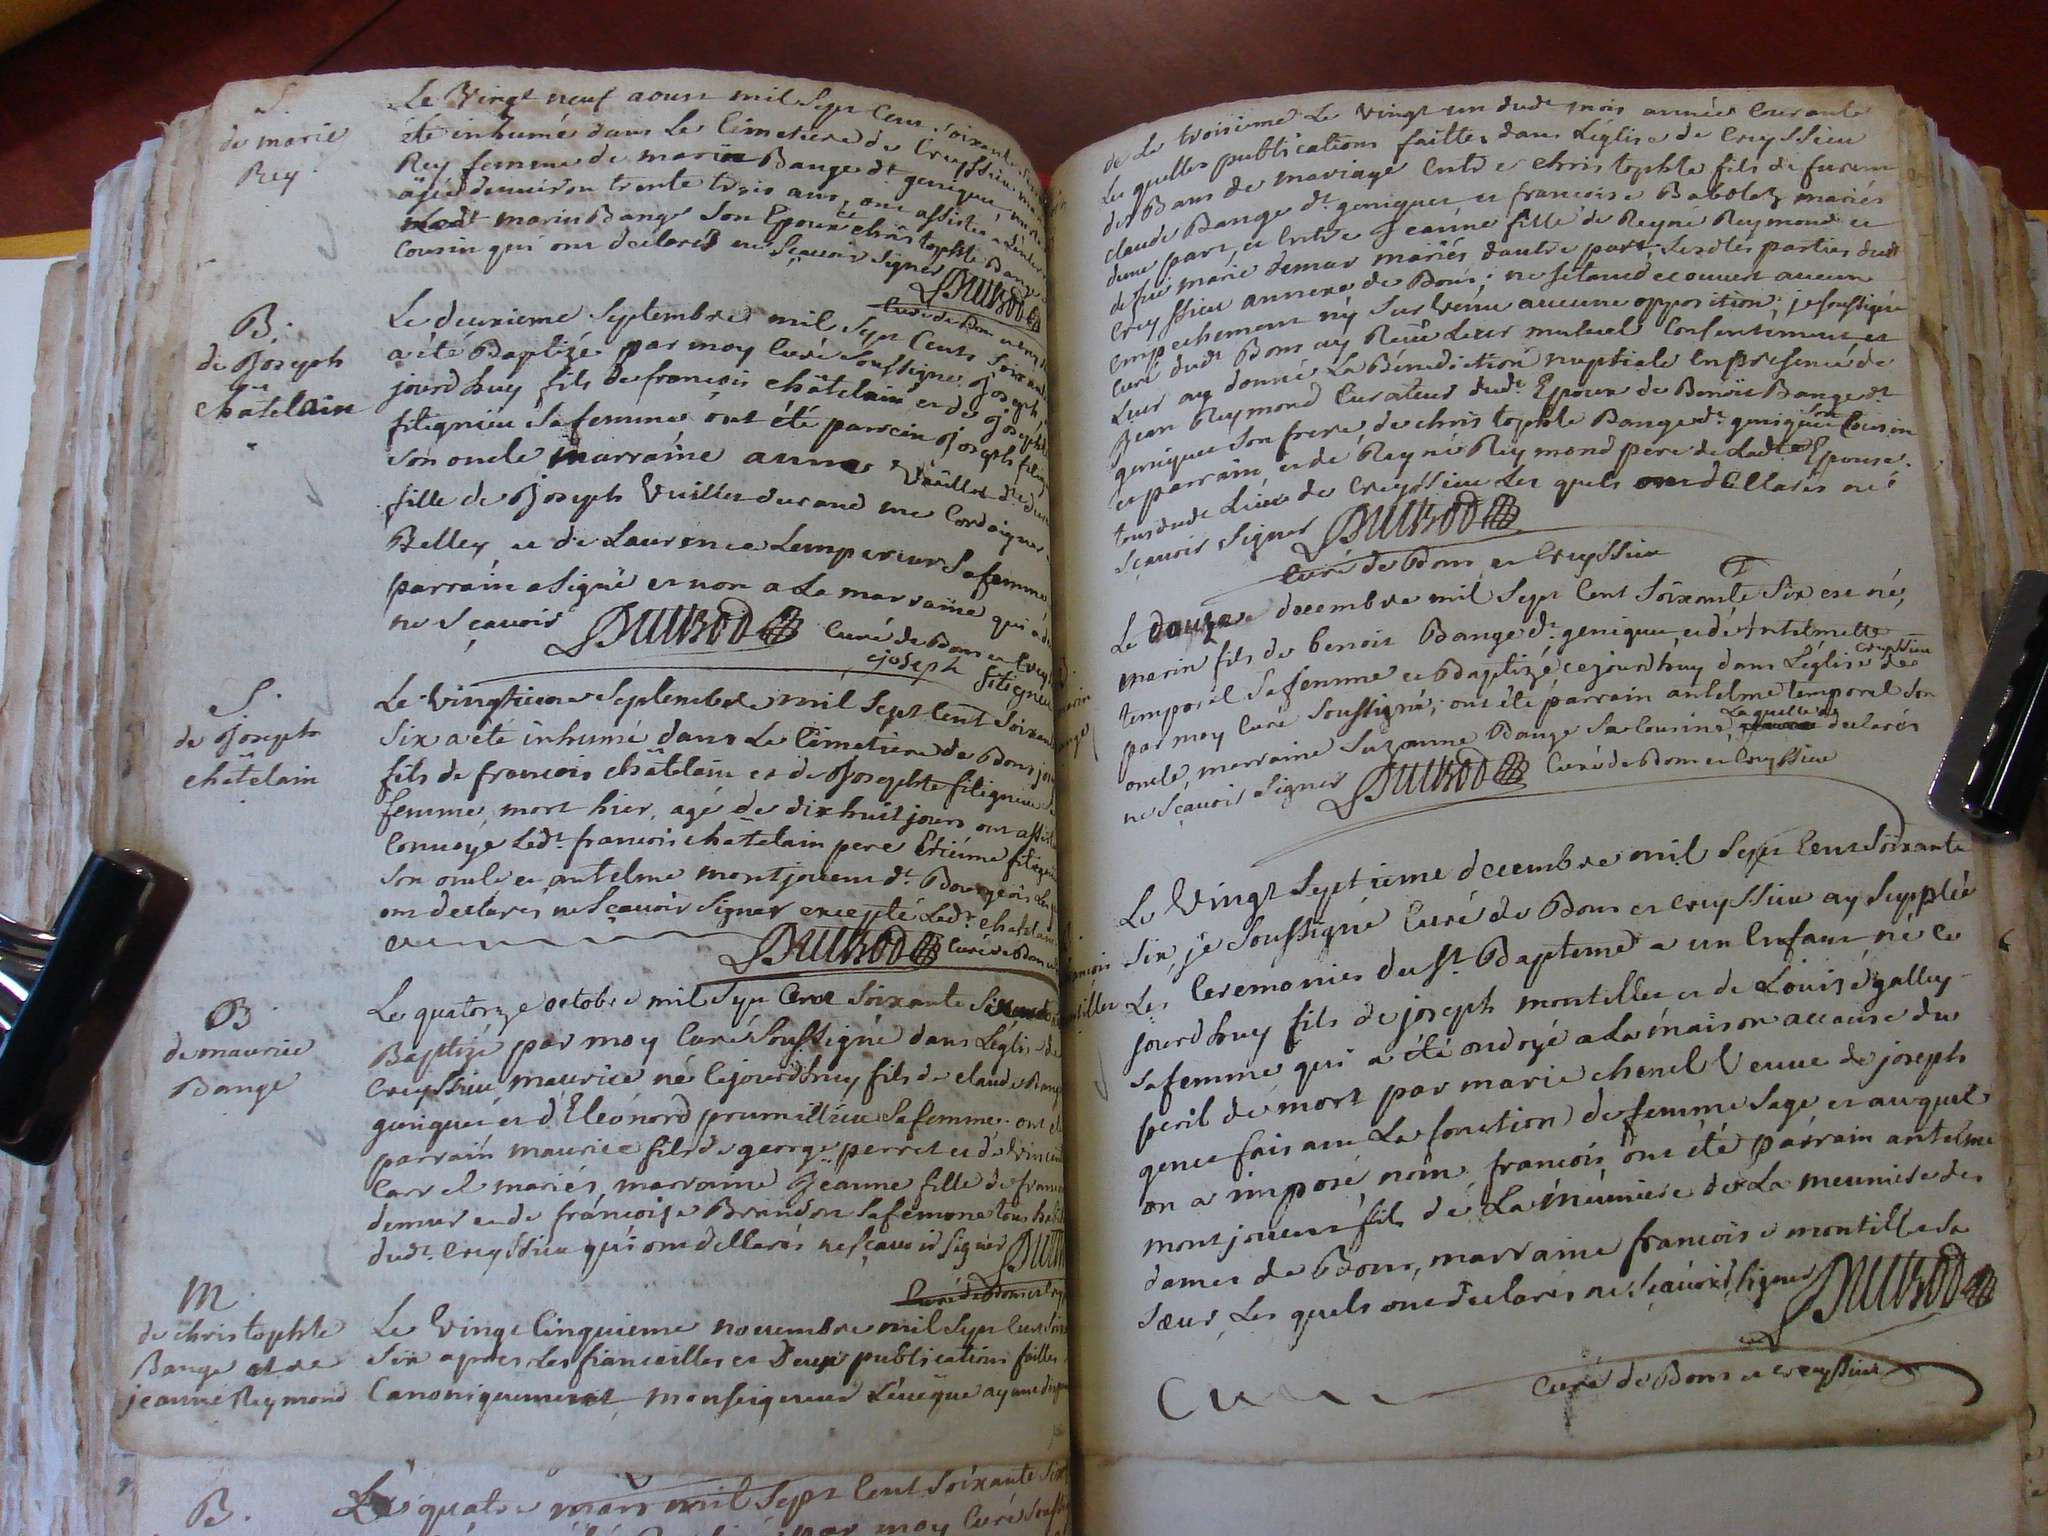 S.
de marie
Rey.
Le Vingt neuf aoust mil Sept Cent Soixante
été inhumé dans Le Cimetiere de Creyssieu
Rey femme de marin Bange dt genique
agée denviron trente trois ans, ont assisté
marin Bange Son Epoux et christophle Bange
Cousin qui ont declarés ne Sçavoir Signer
Curé de Bons
B.
de Joseph
chatelain
Le deuxieme Septembre mil Sept Cents Soixante
a été Baptizé par moy Curé Soussigné Joseph
jourdhuy fils de francois châtelain et de Joseph
filignieu Sa femme ont été parrein Joseph
Son oncle marraine anne Vuillet dt
fille de Joseph Vuillet durand me Cordaigner
Belley et de Laurence Lempereur Sa femme
parrain a Signé et non a La marraine qui a
ne Sçavoir Curé de Bons et
joseph filignieu
S.
de joseph
châtelain
Le Vingtieme Septembre mil Sept Cent Soixante
Six a été inhumé dans Le Cimetiere de Bons
fils de francois châtelain et de Josephte filignieu
femme, mort hier, agé de dix huit jours ont assisté
Convoye Ledt francois chatelain pere Etiénne
Son oncle et antelme montjouent dt Bourgeois
ont declarés ne Sçavoir Signer excepté Ledt chatelain
Curé de Bons
B.
de maurice
Bange
Le quatorze octobre mil Sept Cent Soixante Six
Baptizé par moy Curé Soussigné dans Léglise de
Creyssieu maurice né Cejourdhuy fils de claude Bange
genique et d'Eleonord prumillieu Sa femme. ont
parrain maurice fils de george perret et de Vincent
Carrel mariés, marraine Jeanne fille de
demur et de francoise Brandon Sa femme tous
dudt Creyssieu qui ont dellarés ne Sçavoir Signer
Curé de Bons et
M.
de christophle
Bange et de
jeanne Reymond
Le Vingt Cinquieme novembre mil Sept Cent
Six apres Les fiancailles et Deux publications faittes
Canoniquement, monseigneur Léveque ayant
B.
Le quatre mars mil Sept Cent Soixante Six
par moy Curé
de La troisieme Le Vingt un dudt mois année Courante
Lesquelles publications faittes dans Léglise de Creyssieu
des Bans de mariage entre christophle fils de
claude Bange dt geniquet et francoise Babolaz mariés
dune part, et Entre Jeanne fille de Reyné Reymond et
de marie demur mariés dautre part, Lesdtes parties dudt
Creyssieu annexe de Bons; ne Setant decouvert aucun
empechement ny Survénu aucune opposition; je Soussigné
Curé dudt Bons ay Recu Leur mutuel Consentement et
Leur ay donné La Bénédiction nuptiale en presence de
Jean Reymond Curateur dudt Epoux de Benoit Bange dt
genique Son frere de christophle Bange dt genique Son Cousin
et parrain et de Reyné Reymond pere de Ladte Epouse.
tous dudt Lieu de Creyssieu Lesquels ont déllarés ne
Sçavoir Signer
Curé de Bons et Creyssieu
Le douze decembre mil Sept Cent Soixante Six est né,
marin fils de benoit Bange dt genique, et de Antelmette
temporel Sa femme et Baptizé cejourdhuy dans Léglise de Creyssieu
par moy Curé Soussigné; ont été parrain antelme temporel Son
oncle, marraine Suzanne Bange Sa Cousine, Laquelle declarés
ne Sçavoir Signer Curé de Bons et Creyssieu
Le Vingt Septieme decembre mil Sept Cent Soixante
Six, je Soussigné Curé de Bons et Creyssieu ay Supplée
Les Ceremonies du St. Baptême a un Enfant né Ce
jourdhuy fils de joseph montillet et de Louise galley
Sa femme qui a été ondoyé a La maison accause du
peril de mort par marie chenel Veuve de joseph
gence faisant La fonction de femme Sage et auquel
on a imposé nom, francois, ont été parrain antelme
montjouent fils de La meuniere de La meuniere des
dames de Bons, marraine francoise montillet Sa
Sœur, Les quels ont declarés ne Sçavoir Signer
Curé de Bons et Creyssieu